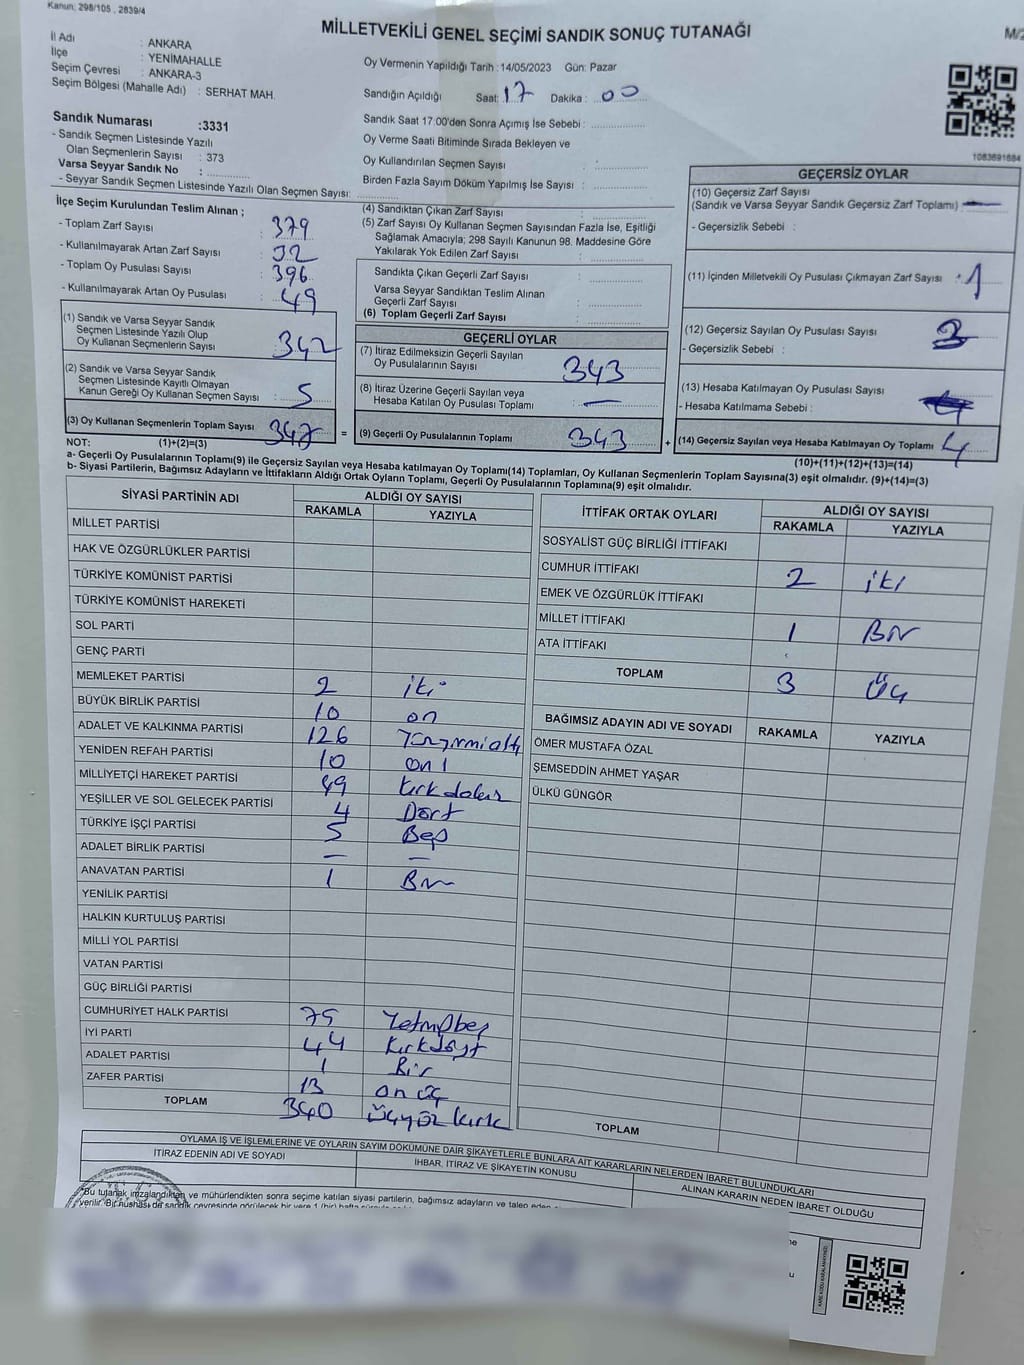 Kanun: 298/105 , 2839/4
MİLLETVEKİLİ GENEL SEÇİMİ SANDIK SONUÇ TUTANAĞI
İl Adı : ANKARA
İlçe : YENİMAHALLE
Seçim Çevresi : ANKARA-3
Seçim Bölgesi (Mahalle Adı) : SERHAT MAH.
Sandık Numarası :3331
- Sandık Seçmen Listesinde Yazılı
Olan Seçmenlerin Sayısı : 373
Varsa Seyyar Sandık No :
- Seyyar Sandık Seçmen Listesinde Yazılı Olan Seçmen Sayısı:
Oy Vermenin Yapıldığı Tarih :14/05/2023 Gün: Pazar
Sandığın Açıldığı Saat: 17 Dakika : 00
Sandık Saat 17.00'den Sonra Açımış İse Sebebi :
Oy Verme Saati Bitiminde Sırada Bekleyen ve
Oy Kullandırılan Seçmen Sayısı :
Birden Fazla Sayım Döküm Yapılmış İse Sayısı :
1083691684
İlçe Seçim Kurulundan Teslim Alınan ;
- Toplam Zarf Sayısı : 379
- Kullanılmayarak Artan Zarf Sayısı : 32
- Toplam Oy Pusulası Sayısı : 396
- Kullanılmayarak Artan Oy Pusulası : 49
(1) Sandık ve Varsa Seyyar Sandık
Seçmen Listesinde Yazılı Olup
Oy Kullanan Seçmenlerin Sayısı : 342
(2) Sandık ve Varsa Seyyar Sandık
Seçmen Listesinde Kayıtlı Olmayan
Kanun Gereği Oy Kullanan Seçmen Sayısı : 5
(3) Oy Kullanan Seçmenlerin Toplam Sayısı 347 =
(4) Sandıktan Çıkan Zarf Sayısı :
(5) Zarf Sayısı Oy Kullanan Seçmen Sayısından Fazla İse, Eşitliği
Sağlamak Amacıyla; 298 Sayılı Kanunun 98. Maddesine Göre
Yakılarak Yok Edilen Zarf Sayısı :
Sandıkta Çıkan Geçerli Zarf Sayısı :
Varsa Seyyar Sandıktan Teslim Alınan
Geçerli Zarf Sayısı :
(6) Toplam Geçerli Zarf Sayısı :
GEÇERLİ OYLAR
(7) İtiraz Edilmeksizin Geçerli Sayılan
Oy Pusulalarının Sayısı : 343
(8) İtiraz Üzerine Geçerli Sayılan veya
Hesaba Katılan Oy Pusulası Toplamı : —
(9) Geçerli Oy Pusulalarının Toplamı 343 +
GEÇERSİZ OYLAR
(10) Geçersiz Zarf Sayısı
(Sandık ve Varsa Seyyar Sandık Geçersiz Zarf Toplamı) : —
- Geçersizlik Sebebi :
(11) İçinden Milletvekili Oy Pusulası Çıkmayan Zarf Sayısı : 1
(12) Geçersiz Sayılan Oy Pusulası Sayısı : 3
- Geçersizlik Sebebi :
(13) Hesaba Katılmayan Oy Pusulası Sayısı :
- Hesaba Katılmama Sebebi :
(14) Geçersiz Sayılan veya Hesaba Katılmayan Oy Toplamı 4
NOT: (1)+(2)=(3)
(10)+(11)+(12)+(13)=(14)
a- Geçerli Oy Pusulalarının Toplamı(9) ile Geçersiz Sayılan veya Hesaba katılmayan Oy Toplamı(14) Toplamları, Oy Kullanan Seçmenlerin Toplam Sayısına(3) eşit olmalıdır. (9)+(14)=(3)
b- Siyasi Partilerin, Bağımsız Adayların ve İttifakların Aldığı Ortak Oyların Toplamı, Geçerli Oy Pusulalarının Toplamına(9) eşit olmalıdır.
SİYASİ PARTİNİN ADI ALDIĞI OY SAYISI
RAKAMLA YAZIYLA
MİLLET PARTİSİ
HAK VE ÖZGÜRLÜKLER PARTİSİ
TÜRKİYE KOMÜNİST PARTİSİ
TÜRKİYE KOMÜNİST HAREKETİ
SOL PARTİ
GENÇ PARTİ
MEMLEKET PARTİSİ 2 iki
BÜYÜK BİRLİK PARTİSİ 10 on
ADALET VE KALKINMA PARTİSİ 126 Yüzyirmialtı
YENİDEN REFAH PARTİSİ 10 on
MİLLİYETÇİ HAREKET PARTİSİ 49 kırkdokuz
YEŞİLLER VE SOL GELECEK PARTİSİ 4 Dört
TÜRKİYE İŞÇİ PARTİSİ 5 Beş
ADALET BİRLİK PARTİSİ — —
ANAVATAN PARTİSİ 1 Bir
YENİLİK PARTİSİ
HALKIN KURTULUŞ PARTİSİ
MİLLİ YOL PARTİSİ
VATAN PARTİSİ
GÜÇ BİRLİĞİ PARTİSİ
CUMHURİYET HALK PARTİSİ 75 Yetmişbeş
İYİ PARTİ 44 kırkdört
ADALET PARTİSİ 1 Bir
ZAFER PARTİSİ 13 on üç
TOPLAM 340 üçyüz kırk
İTTİFAK ORTAK OYLARI ALDIĞI OY SAYISI
RAKAMLA YAZIYLA
SOSYALİST GÜÇ BİRLİĞİ İTTİFAKI
CUMHUR İTTİFAKI 2 iki
EMEK VE ÖZGÜRLÜK İTTİFAKI
MİLLET İTTİFAKI 1 Bir
ATA İTTİFAKI
TOPLAM 3 Üç
BAĞIMSIZ ADAYIN ADI VE SOYADI RAKAMLA YAZIYLA
ÖMER MUSTAFA ÖZAL
ŞEMSEDDİN AHMET YAŞAR
ÜLKÜ GÜNGÖR
TOPLAM
OYLAMA İŞ VE İŞLEMLERİNE VE OYLARIN SAYIM DÖKÜMÜNE DAİR ŞİKAYETLERLE BUNLARA AİT KARARLARIN NELERDEN İBARET BULUNDUKLARI
İTİRAZ EDENİN ADI VE SOYADI İHBAR, İTİRAZ VE ŞİKAYETİN KONUSU ALINAN KARARIN NEDEN İBARET OLDUĞU
Bu tutanak imzalandıktan ve mühürlendikten sonra seçime katılan siyasi partilerin, bağımsız adayların ve talep eden